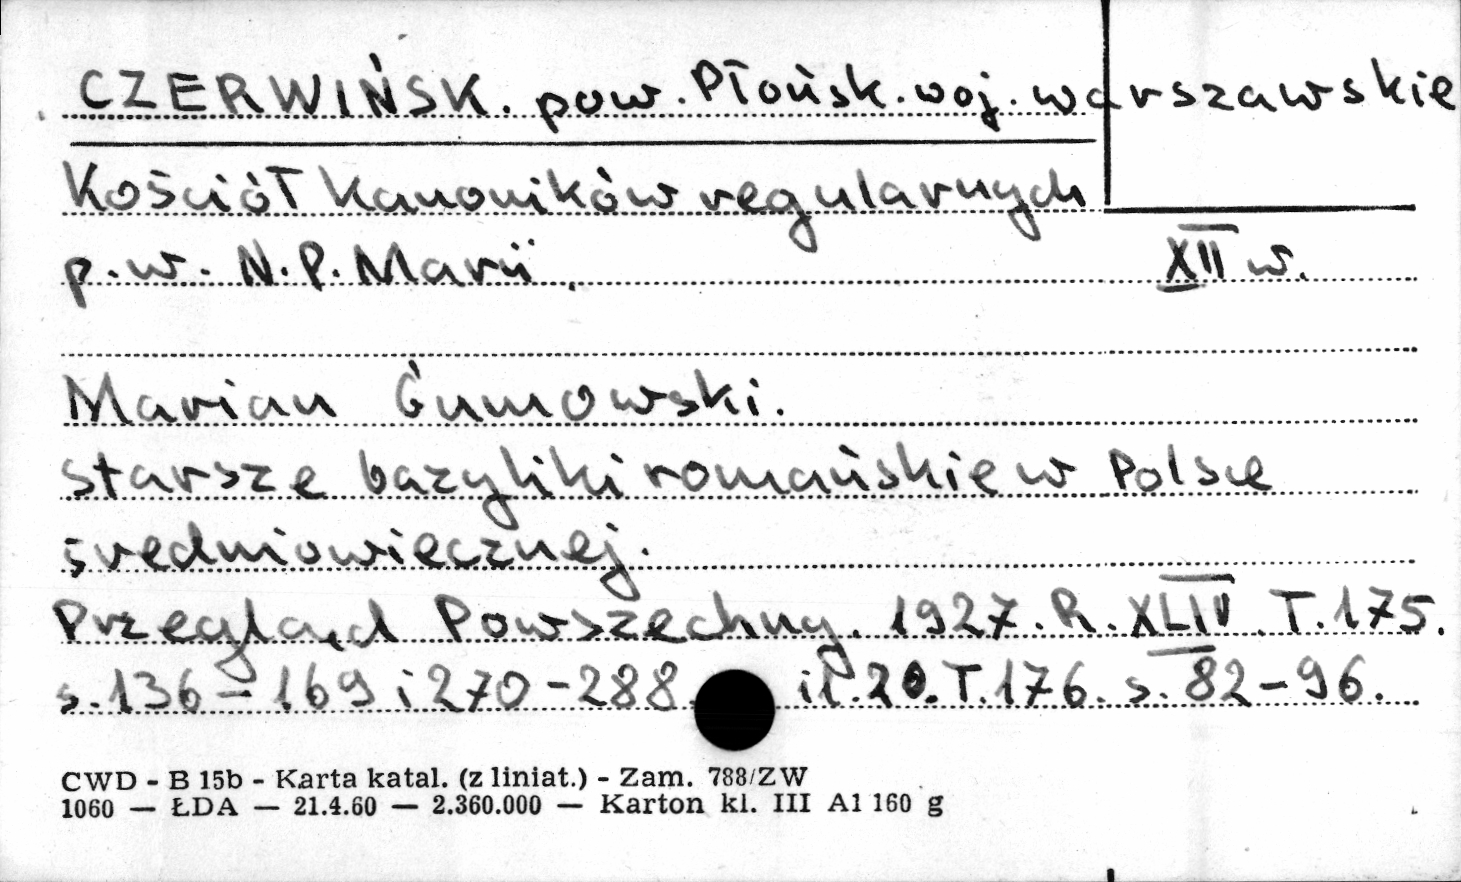 CZERWIŃSK. pow. Płońsk. woj. warszawskie
Kościół Kanoników regularnych
p.w. N.P. Marii. XII w.
Marian Gumowski.
starsze bazyliki romańskie w Polsce
średniowiecznej.
Przegląd Powszechny. 1927. R. XLIV. T. 175.
s. 136-169 i 270-288. il. 20. T. 176. s. 82-96.
CWD - B 15b - Karta katal. (z liniat.) - Zam. 788/ZW
1060 — ŁDA — 21.4.60 — 2.360.000 — Karton kl. III A1 160 g